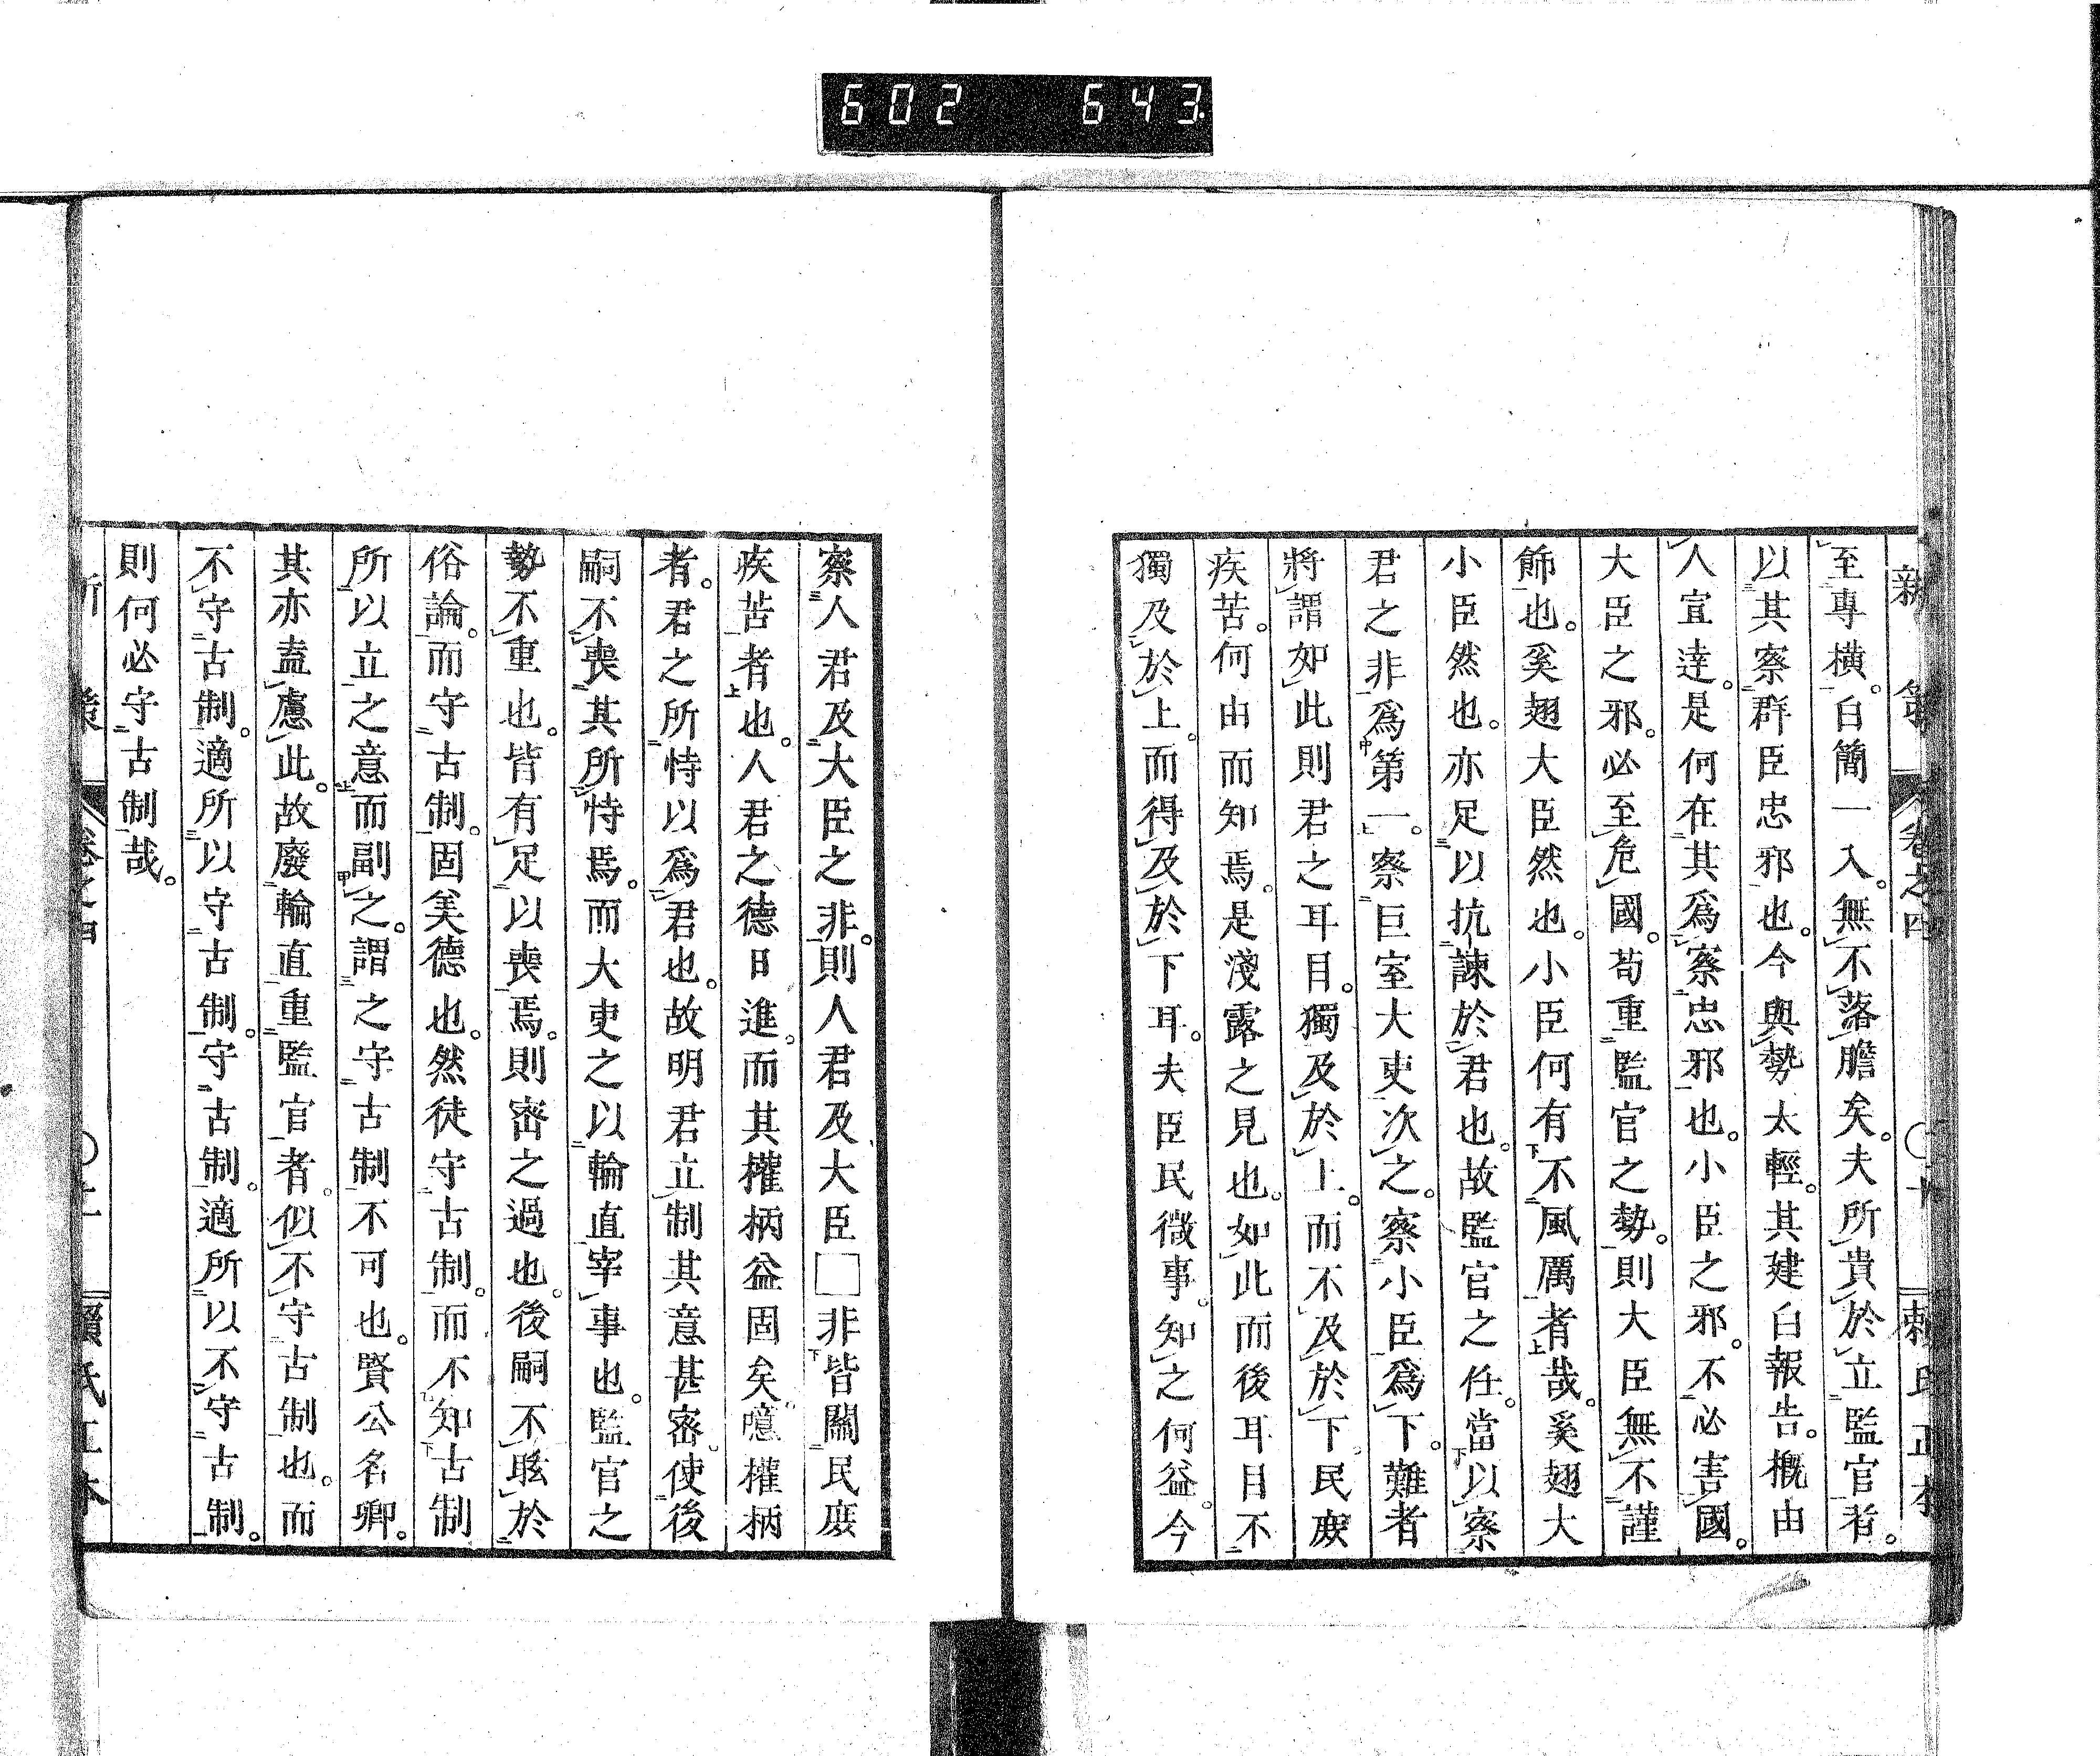 602 643
新策 卷之四 ○十 賴氏正本
至專橫。白簡一入。無不落膽矣。夫所貴於立監官者。
以其察群臣忠邪也。今與勢太輕。其建白報告。概由
人宣達。是何在其爲察忠邪也。小臣之邪。不必害國。
大臣之邪。必至危國。苟重監官之勢。則大臣無不謹
飾也。奚翅大臣然也。小臣何有不風厲者哉。奚翅大
小臣然也。亦足以抗諫於君也。故監官之任。當以察
君之非爲第一。察巨室大吏次之。察小臣爲下。難者
將謂如此則君之耳目。獨及於上。而不及於下。民庶
疾苦。何由而知焉。是淺露之見也。如此而後耳目不
獨及於上。而得及於下耳。夫臣民微事。知之何益。今
察人君及大臣之非。則人君及大臣□非皆關民庶
疾苦者也。人君之德日進。而其權柄益固矣。噫權柄
者。君之所恃以爲君也。故明君立制其意甚密。使後
嗣不喪其所恃焉。而大吏之以輪直宰事也。監官之
勢不重也。皆有足以喪焉。則密之過也。後嗣不眩於
俗論。而守古制。固美德也。然徒守古制。而不知古制
所以立之意而副之。謂之守古制不可也。賢公名卿。
其亦盍慮此。故廢輪直重監官者。似不守古制也。而
不守古制。適所以守古制。守古制。適所以不守古制。
則何必守古制哉。
新策 卷之四 ○十 賴氏正本